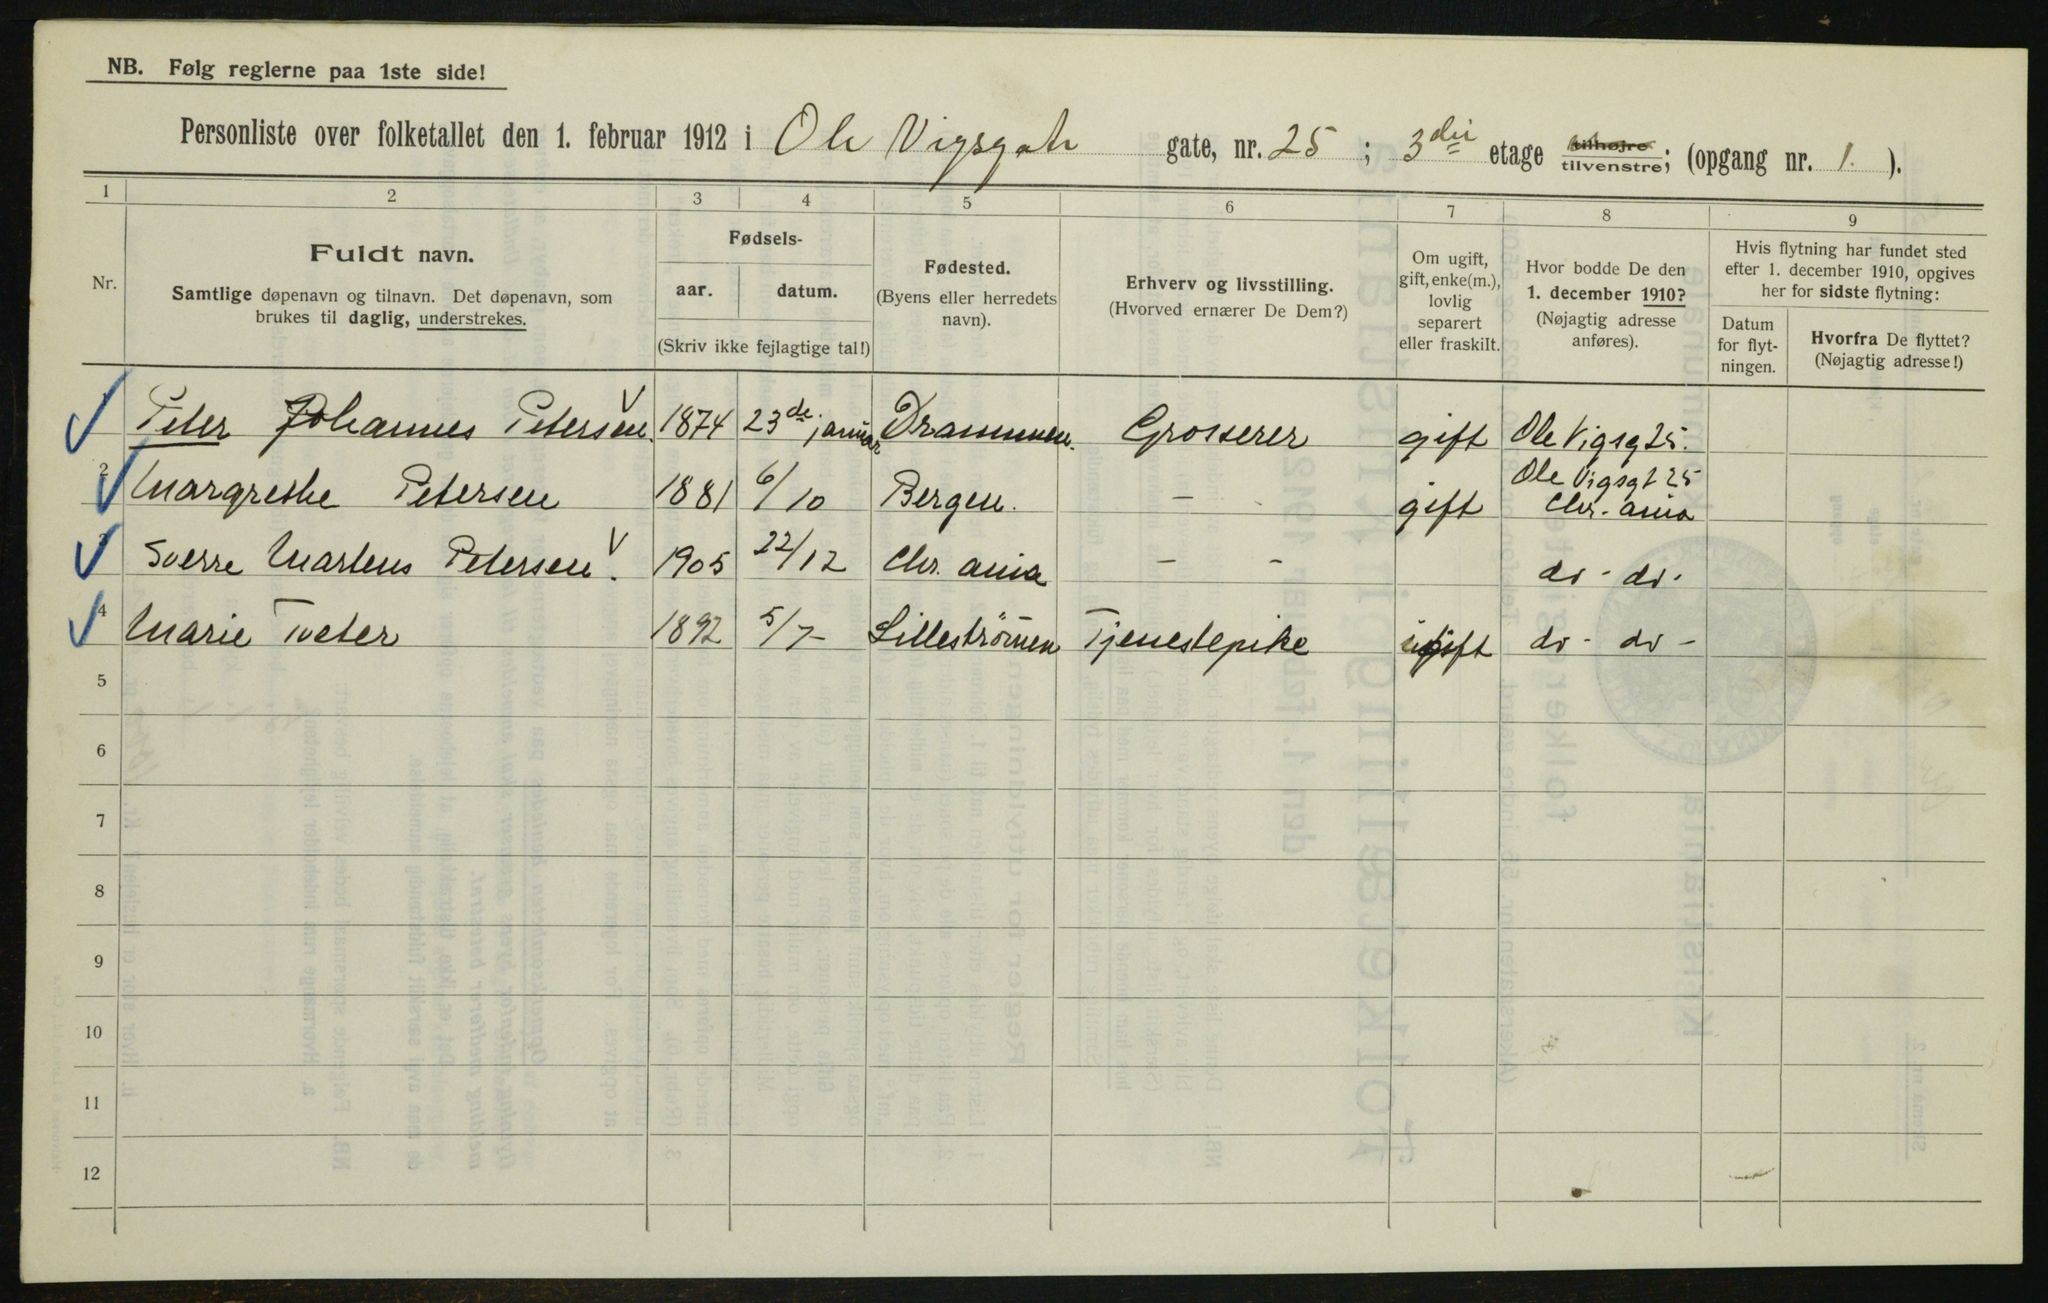 NB. Følg reglerne paa 1ste side!
Personliste over folketallet den 1. februar 1912 i Ole Vigsgate gate, nr. 25 ; 3die etage tilhøjre tilvenstre; (opgang nr. 1. ).
1 2 3 4 5 6 7 8 9
Nr.
Fuldt navn.
Samtlige døpenavn og tilnavn. Det døpenavn, som
brukes til daglig, understrekes.
Fødsels-
aar. datum.
(Skriv ikke fejlagtige tal!)
Fødested.
(Byens eller herredets
navn).
Erhverv og livsstilling.
(Hvorved ernærer De Dem?)
Om ugift,
gift, enke(m.),
lovlig
separert
eller fraskilt.
Hvor bodde De den
1. december 1910?
(Nøjagtig adresse
anføres).
Hvis flytning har fundet sted
efter 1. december 1910, opgives
her for sidste flytning:
Datum
for flyt-
ningen.
Hvorfra De flyttet?
(Nøjagtig adresse!)
Peter Johannes Petersen. 1874 23de januar Drammen. Grosserer gift Ole Vigsg 25.
2 Margrethe Petersen 1881 6/10 Bergen. - gift Ole Vigsgt 25 Chr. ania
3 Sverre Martens Petersen. 1905 22/12 Chr. ania - - do - do -
4 Marie Tveter 1892 5/7 - Lillestrømmen Tjenestepike ugift do - do -
5
6
7
8
9
10
11
12